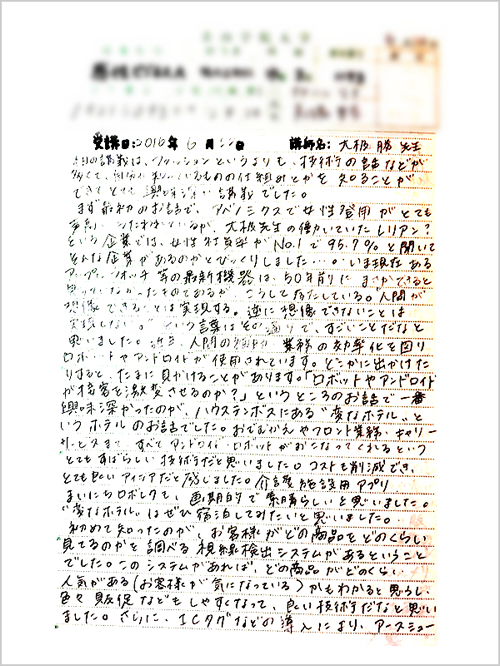 受講日:2016年 6月22日 講師名: 大極 勝 先生
の講義は、ファッションというよりも、技術の話などが
多くて、いるものの仕組みとかを知ることが
できてとても興味深い講義でした。
まず最初のお話で、アベノミクスで女性登用がとても
いわれているが、大極先生の働いていたレリアン?
という企業では、女性社員率がNo.1で95.7%と聞いて
そんな企業があるのかとびっくりしました…。いま現在ある
アップルウォッチ等の最新機器は、50年前にまさかできると
なかったものであるが、こうして存在している。人間が
想像できることは実現する。逆に想像できないことは
実現しない。という言葉はその通りで、すごいことだなと
思いました。近年、人間の 業務の効率化を図り
ロボットやアンドロイドが使用されています。どこかに出かけた
りすると、たまに見かけることがあります。「ロボットやアンドロイド
が接客を激変させるのか?」というところのお話で一番
興味深かったのが、ハウステンボスにある"変なホテル"と
いうホテルのお話でした。おでむかえやフロント業務・キャリー
サービスまで、すべてアンドロイド・ロボットがおこなってくれるという
とてもすばらしい技術だと思いました。コストも削減でき、
とても良いアイデアだと感じました。介護施設用アプリ
まいにちロボレクも、画期的で素晴らしいと思いました。
"変なホテル"はぜひ宿泊してみたいと思いました。
初めて知ったのが、お客様がどの商品をどのくらい
見てるのかを調べる視線検出システムがあるということ
でした。このシステムがあれば、どの商品がどのくらい
人気がある(お客様が気になっている)かもわかると思うし、
色々販促などもしやすくなって、良い技術だなと思い
ました。さらに、ICタグなどの導入により、アースミュー